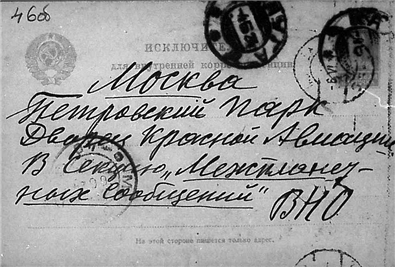 46б
ИСКЛЮЧИТЕЛ
для внутренней корреспонденции
Москва
Петровский Парк
Дворец Красной Авиации
В секцию „Межпланет-
ных сообщений"
ВНО
На этой стороне пишется только адрес.